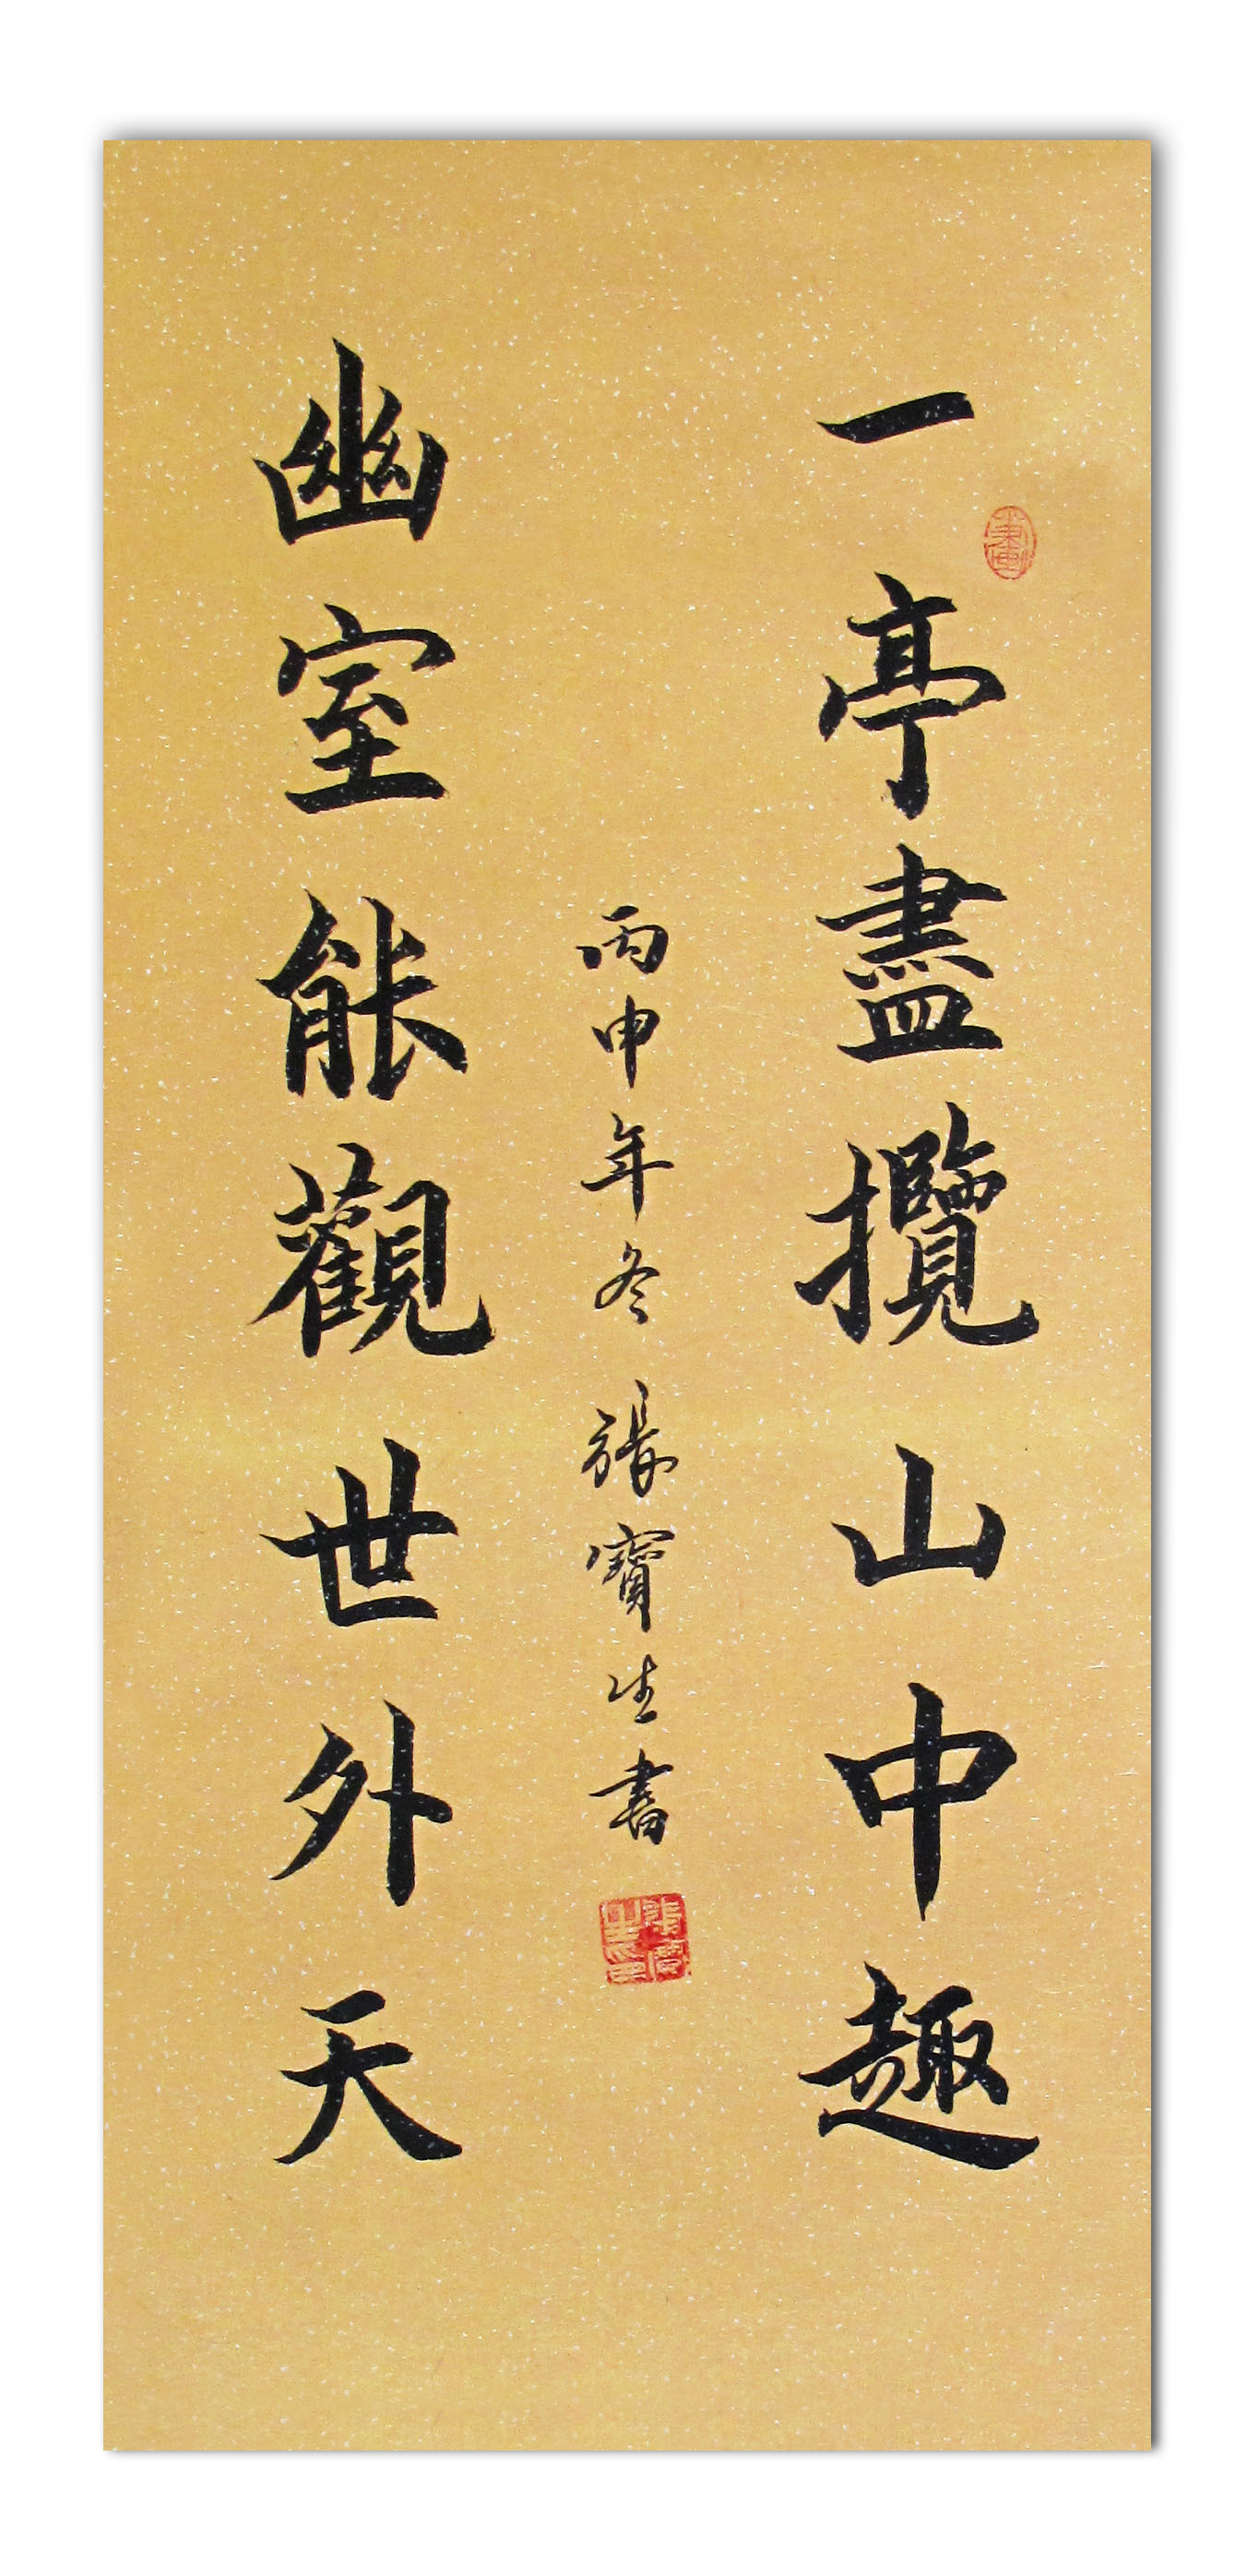 一亭盡攬山中趣
丙申年冬張寶生書
幽室能觀世外天